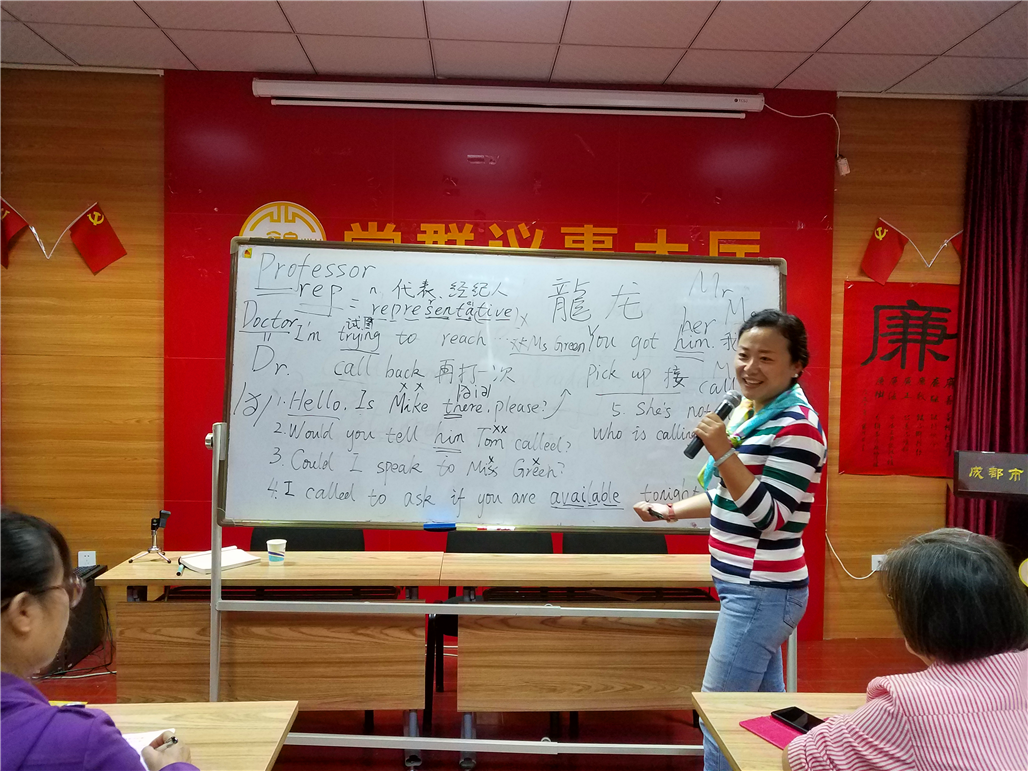 党群议事大厅
Professor
rep n. 代表. 经纪人
= representative
龍 龙
Mr
Doctor
I'm trying to reach … Ms Green
试图
You got him.
her
Dr.
call back 再打一次
Pick up 接
call
1. Hello. Is Mike there, please?
5. She's not
2. Would you tell him Tom called?
Who is calling
3. Could I speak to Miss Green?
4. I called to ask if you are available tonight
廉
成都市